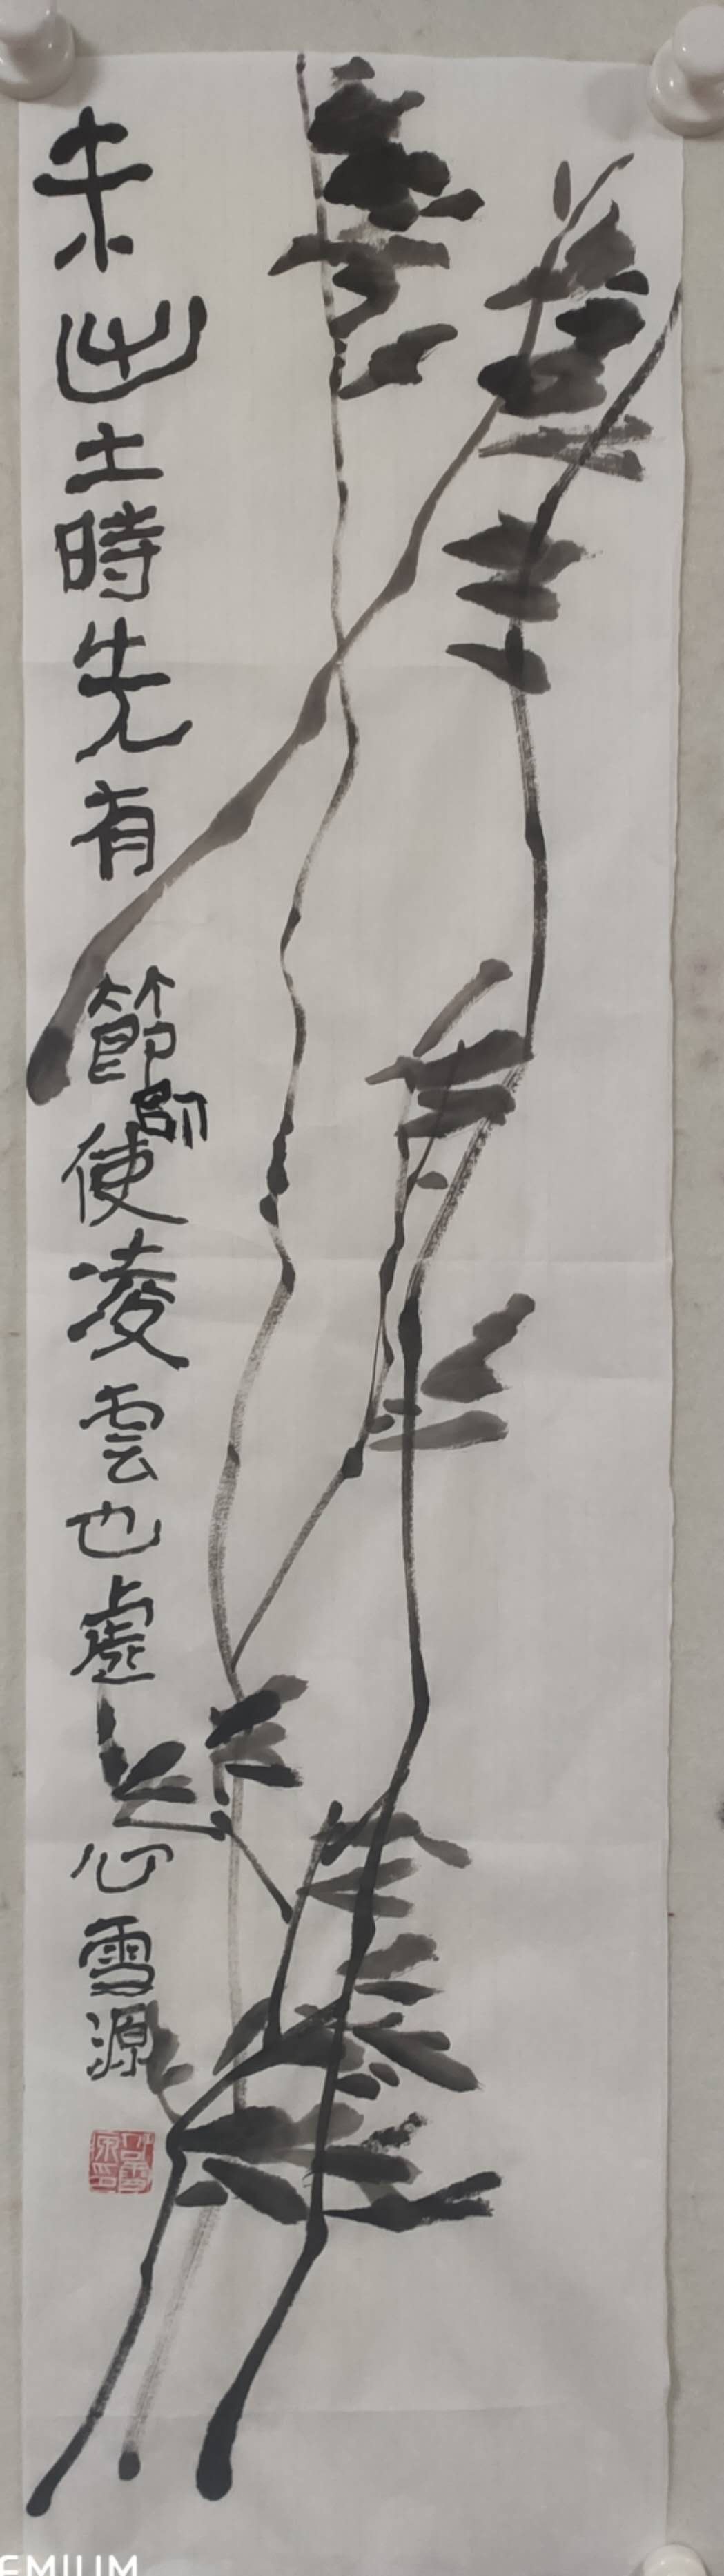 未出土時先有節師使凌雲也虚心雪源
EMIUM